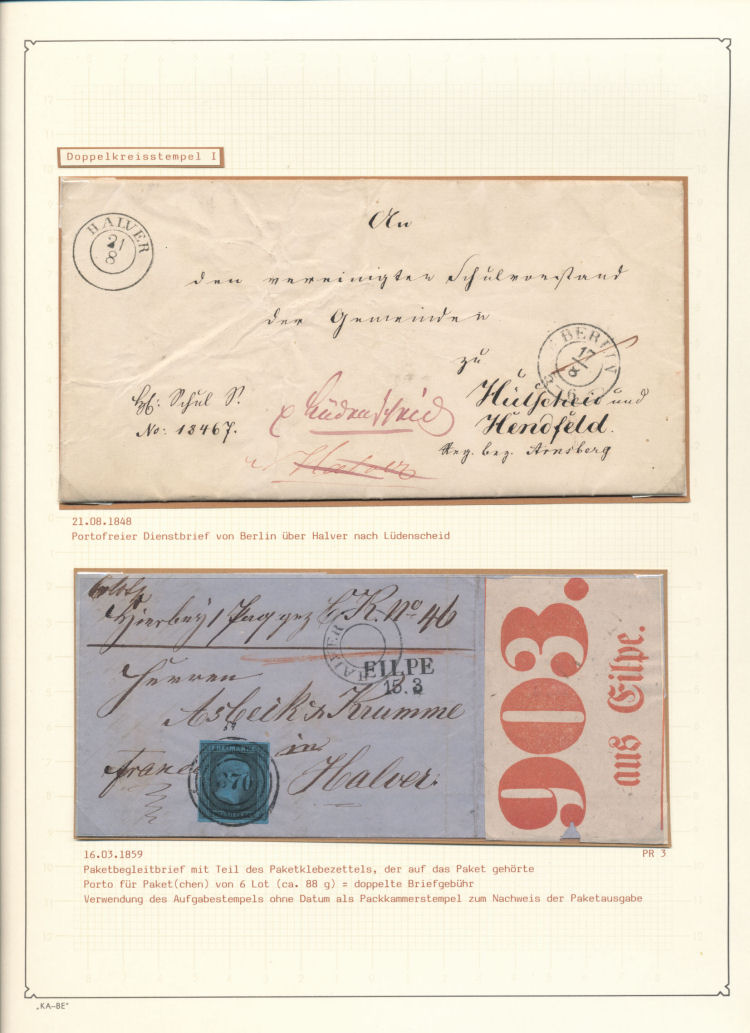 Doppelkreisstempel I
HALVER
21
8
An
den vereinigten Schulvorstand
der Gemeinden
zu
BERLIN
17
8
Hülscheid und
Hendfeld.
Reg. bez. Arnsberg
Schul S.
No: 13467.
p Lüdenscheid
Halver
21.08.1848
Portofreier Dienstbrief von Berlin über Halver nach Lüdenscheid
Hierbey 1 Paq gez C.K. No 46
HALVER
EILPE
15.3
Herren
Asbeck & Krumme
in
franco
Halver.
FREIMARKE
370
903.
aus Eilpe.
16.03.1859
PR 3
Paketbegleitbrief mit Teil des Paketklebezettels, der auf das Paket gehörte
Porto für Paket(chen) von 6 Lot (ca. 88 g) = doppelte Briefgebühr
Verwendung des Aufgabestempels ohne Datum als Packkammerstempel zum Nachweis der Paketausgabe
„KA-BE"